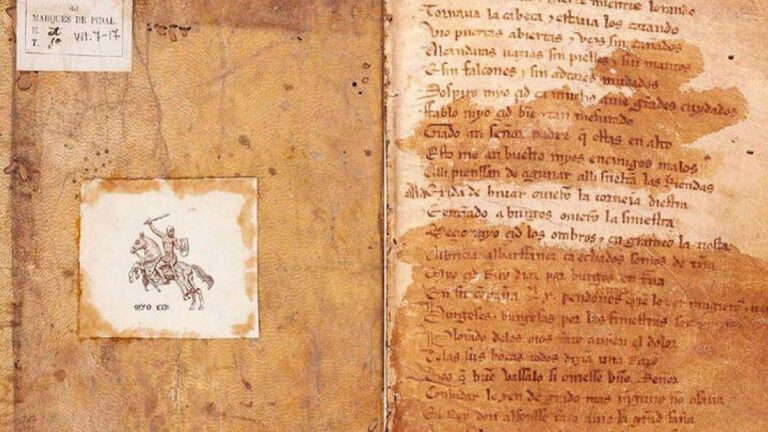 del
MARQUÉS DE PIDAL
E.
T.
Vit. 7-17
MYO CID
mientre lorando
Tornaua la cabeça y estaua los catando
Vio puertas abiertas y vços sin cañados
Alcandaras uazias sin pielles y sin mantos
E sin falcones y sin adtores mudados
Sospiro myo çid ca mucho auie grãdes cuydados
Fablo myo çid bie y tan mesurado
Grado ati señor padre q estas en alto
Esto me an buelto myos enemigos malos
Alli pienssan de aguiiar alli sueltã las Riendas
Ala Exida de biuar ouierõ la corneia diestra
E entrãdo a burgos ouierõ la siniestra
Meçio myo çid los ombros y en grameo la tiesta
Albricia albarffanez ca echados somos de trã
Myo çid Ruy diaz por burgos en trãua
En su cõpaña .Lx. pendones
burgeses y burgesas por las finiestras son
Plorando delos oios tãto auyen el dolor
Delas sus bocas todos dizia una Razo
Dios q bue vassalo si ouiesse bue Señor
Conbidar le yen de grado mas ninguno no osaua
El Rey don alfonsso tãto auie la grãd saña